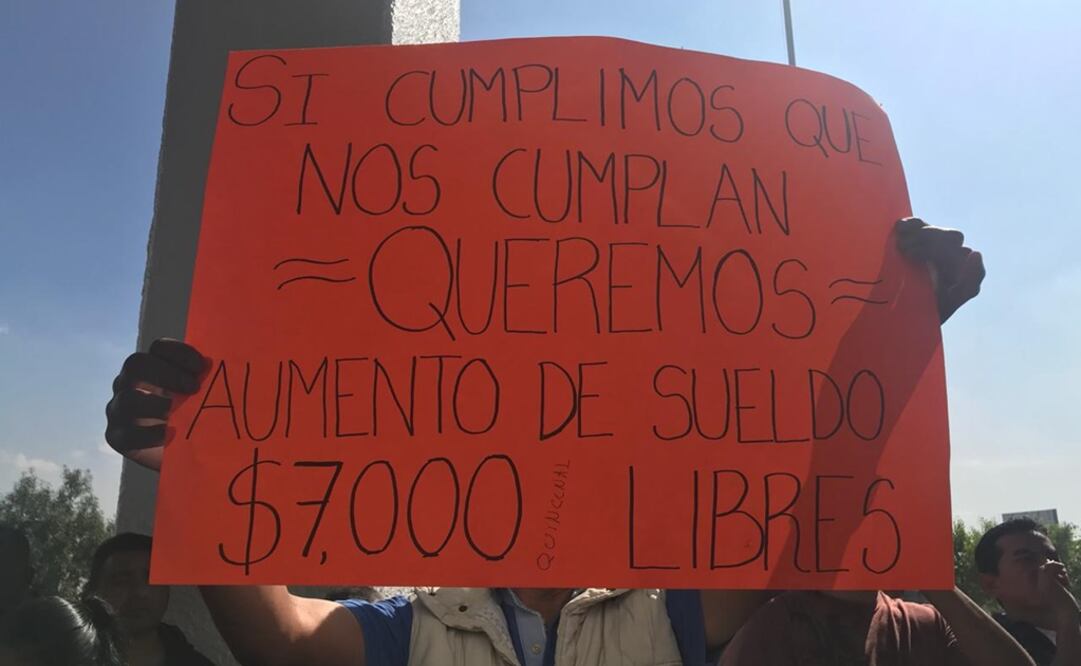 SI CUMPLIMOS QUE
NOS CUMPLAN
≈ QUEREMOS ≈
AUMENTO DE SUELDO
$7,000 QUINCENAL LIBRES